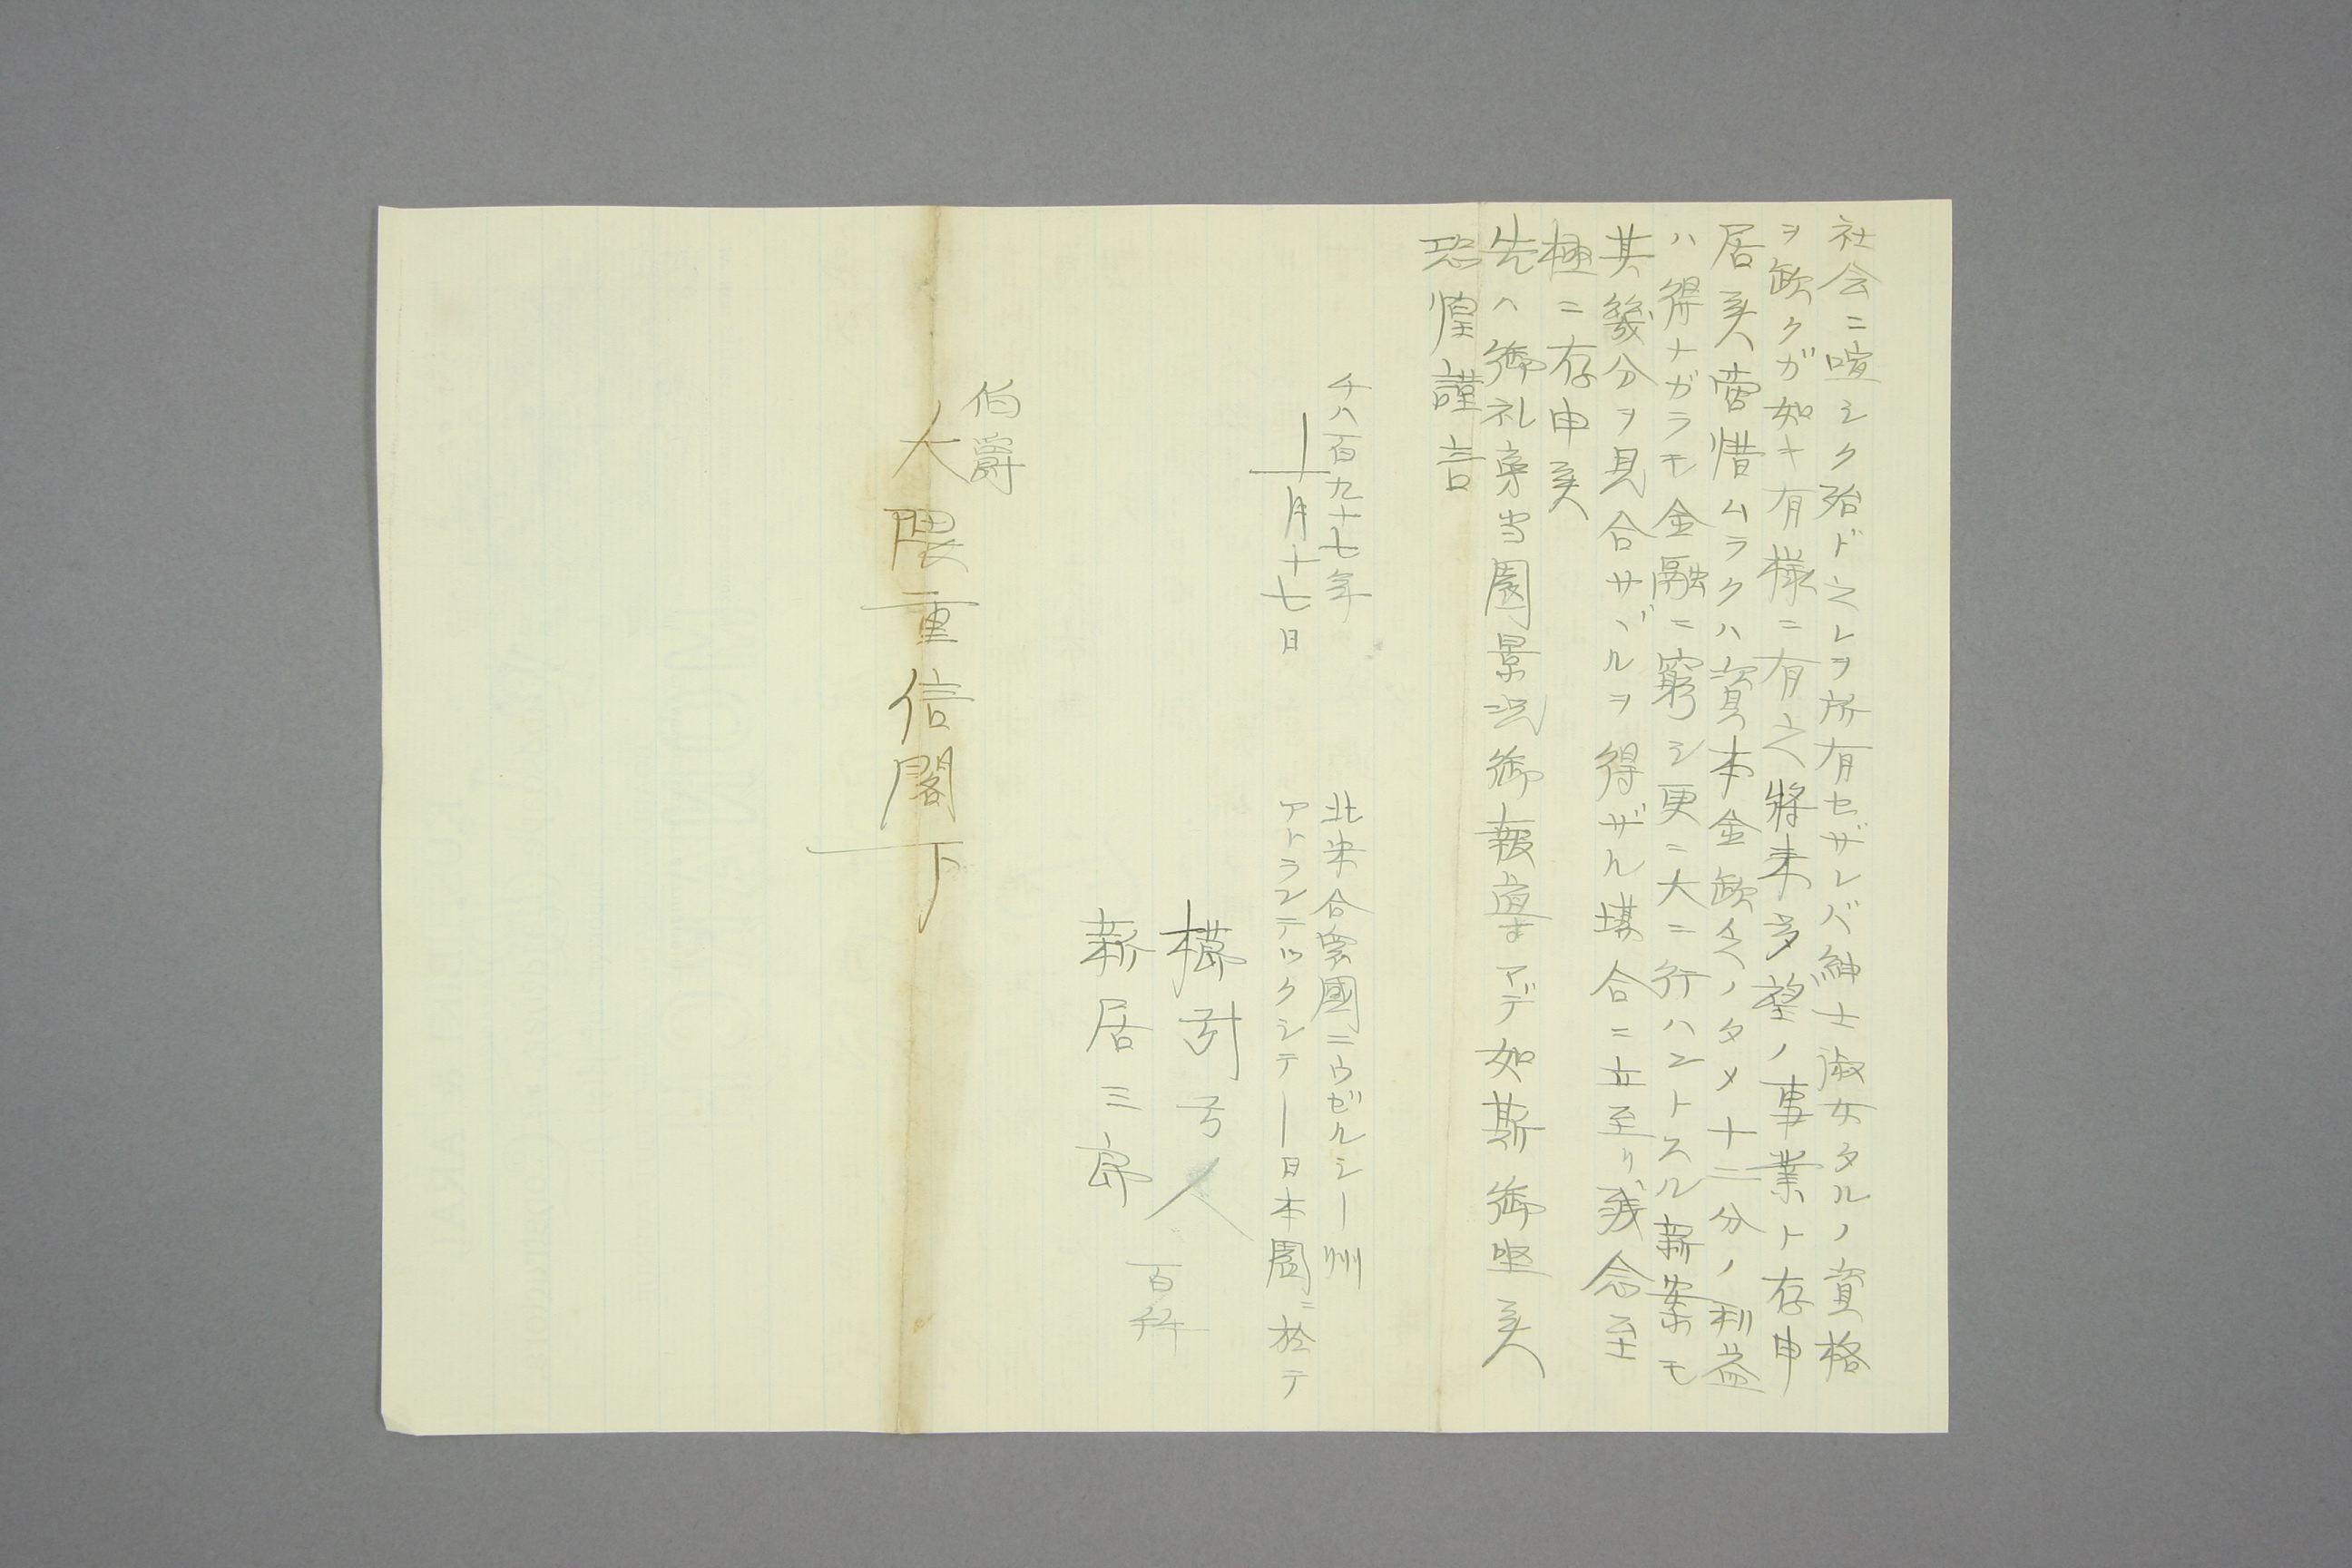 社会ニ喧シク殆ド之レヲ所有セザレバ紳士淑女タルノ資格
ヲ欽クガ如キ有様ニ有之将来多望ノ事業ト存申
居候啻惜ムラクハ資本金欽乏ノタメ十二分ノ利益
ハ得ナガラモ金融ニ窮シ更ニ大ニ行ハントスル新案モ
其幾分ヲ見合サヾルヲ得ザル塲合ニ立至リ残念至
極ニ存申候
先ハ御礼旁当園景況御報導アデ如斯御座候
恐惶謹言
千八百九十七年
十月十七日
北米合衆國ニウゼルシー州
アトランテックシテー日本園ニ於テ
櫛引弓人
新居三郎
百拝
伯爵
大隈重信閣下